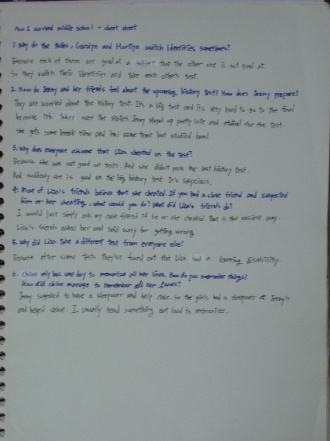 How I survived middle school - cheat sheet
1. Why do the twins, Carolyn and Marilyn switch identities sometimes?
Because each of them are good at a subject that the other one is not good at.
So they switch their identities and take each other's test.
2. How do Jenny and her friends feel about the upcoming history test? How does Jenny prepare?
They are worried about the history test. It's a big test and it's very hard to go to the final
because it takes over the states. Jenny stayed up pretty late and studied for the test.
she gets some break time and had some time but studied hard.
3. Why does everyone assume that Lisa cheated on the test?
Because she was not good on tests. And she didn't pass the last history test.
And suddenly she is good on the big history test. It's suspicious.
4. Most of Lisa's friends believe that she cheated. If you had a close friend and suspected
him or her cheating, what would you do? What did Lisa's friends do?
I would just simply ask my close friend if he or she cheated. That is the easiest way.
Lisa's friends asked her and said sorry for getting wrong.
5. Why did Lisa take a different test from everyone else?
Because after some tests they've found out the Lisa had a learning disability.
6. Chloe only has one day to memorize all her lines. How do you remember things?
How did chloe manage to remember all her lines?
Jenny suggested to have a sleepover and help chloe. So the girls had a sleepover at Jenny's
and helped chloe. I usually read something out loud to memorize.